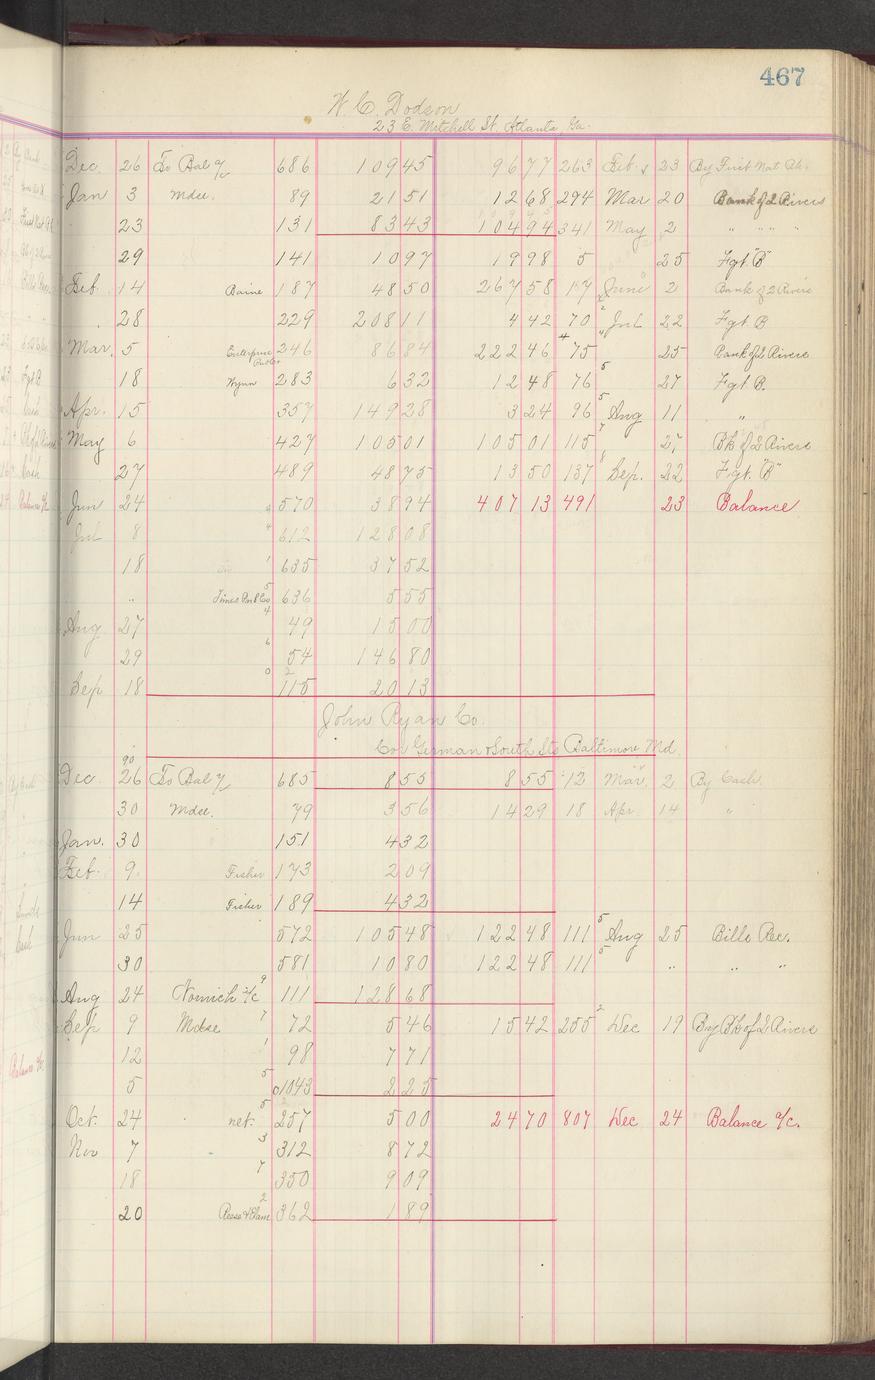 467
W. C. Dodson
23 E. Mitchell St. Atlanta, Ga.
Dec. 26 To Bal a/c 686 109 45 96 77 263 Feb. 23 By First Nat Bk.
Jan 3 Mdse. 89 21 51 12 68 294 Mar 20 Bank of 2 Rivers
23 131 83 43 104 94 341 May 2 " " " "
29 141 10 97 19 98 5 25 Fgt "B"
Feb. 14 Baine 187 48 50 267 58 17 June 2 Bank of 2 Rivers
28 229 208 11 4 42 70 Jul 22 Fgt. B
Mar. 5 Enterprise Pub Co 246 86 84 222 46 75 25 Bank of 2 Rivers
18 Wynn 283 6 32 12 48 76 27 Fgt B.
Apr. 15 357 149 28 3 24 96 Aug 11 "
May 6 427 105 01 105 01 115 27 Bk of 2 Rivers
27 489 48 75 13 50 137 Sep. 22 Fgt. "B"
Jun 24 570 38 94 407 13 491 23 Balance
Jul 8 612 128 08
18 635 37 52
" Times Pub Co 636 5 55
Aug 27 49 15 00
29 54 146 80
Sep 18 115 20 13
John Ryan Co.
Cor German & South Sts Baltimore Md.
90
Dec. 26 To Bal a/c 685 8 55 8 55 12 Mar. 2 By Cash
30 Mdse. 79 3 56 14 29 18 Apr 14 "
Jan. 30 151 4 32
Feb. 9 Fisher 173 2 09
14 Fisher 189 4 32
Jun 25 572 105 48 122 48 111 Aug 25 Bills Rec.
30 581 10 80 122 48 111 " " "
Aug 24 Norwich a/c 111 128 68
Sep 9 Mdse 72 5 46 15 42 255 Dec 19 By Bk of 2 Rivers
12 98 7 71
5 1043 2 25
Oct. 24 net. 257 5 00 24 70 807 Dec 24 Balance a/c.
Nov 7 312 8 72
18 350 9 09
20 362 1 89